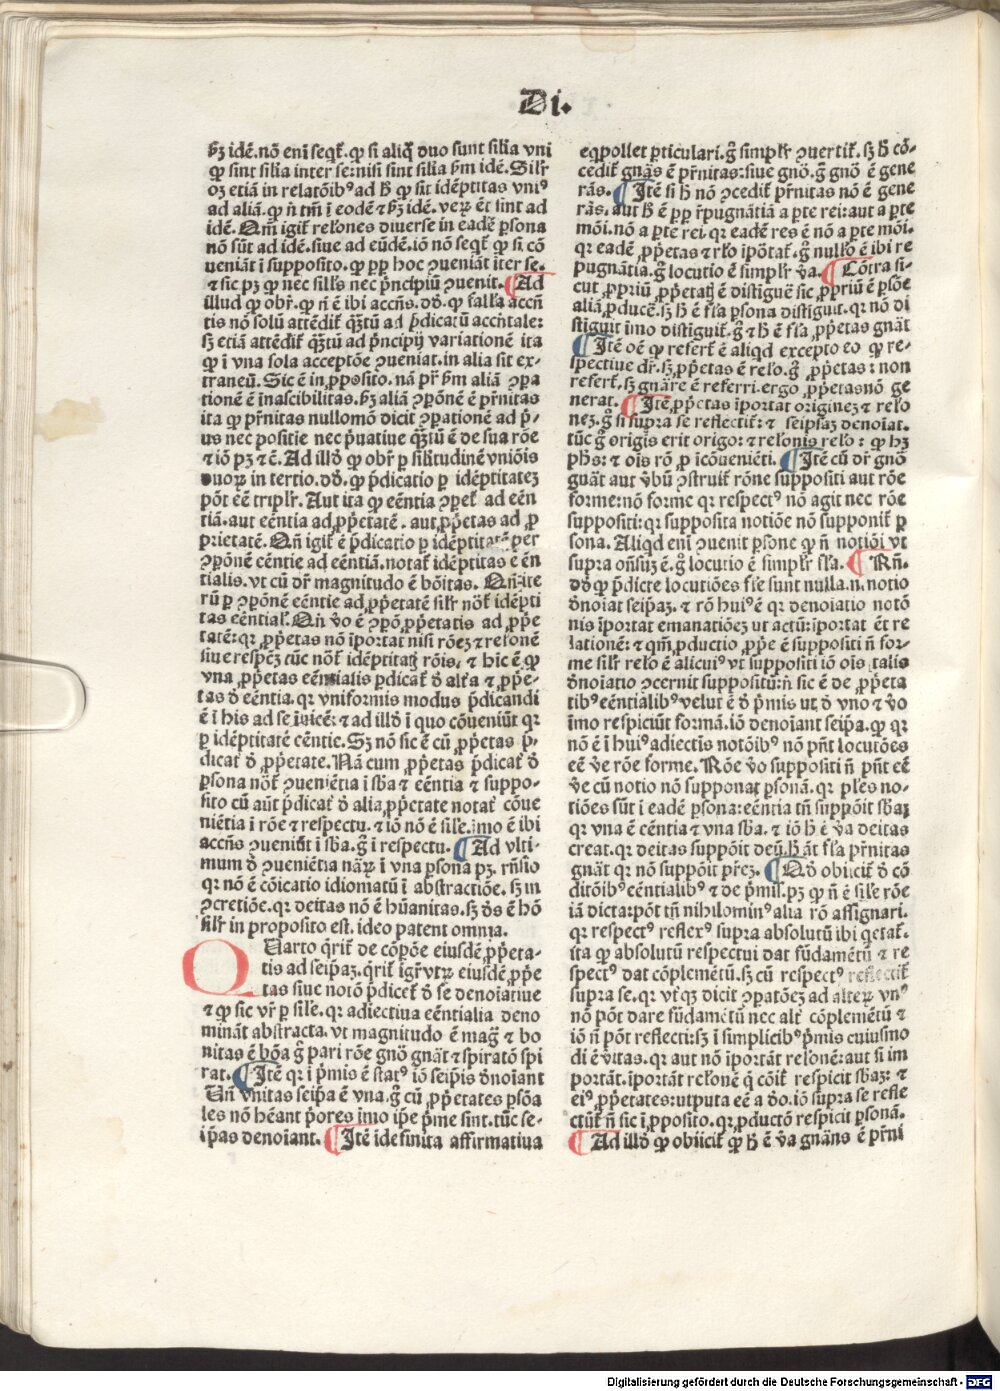 Di.
ẜꝫ idē. nō eni seqt̄. ꝙ si aliq̄ duo sunt silia vni
ꝙ sint silia inter se: nisi sint silia ẜm idē. Silr̄
oꝫ etiā in relatōibꝰ ad ħ ꝙ sit idēptitas vniꝰ
ad aliā. ꝙ n̄ tm̄ i eodē ⁊ ẜꝫ idē. veꝝ ēt sint ad
idē. Qm̄ igit̄ rel'ones diverse in eadē ꝑsona
nō sūt ad idē. siue ad eūdē. iō nō seqt̄ ꝙ si cō
ueniāt ī supposito. ꝙ ꝓp hoc ꝯueniāt iter se.
⁊ sic pꝫ ꝙ nec sill's nec p̄ncipiū ꝯuenit. Ad
illud ꝙ obr̄. ꝙ n̄ ē ibi accn̄s. dō. ꝙ falľa accn̄
tis nō solū attēdit̄ qꝫtū ad p̄dicatū accn̄tale:
sꝫ etiā attēdit̄ qꝫtū ad p̄ncipij variationē ita
ꝙ i vna sola acceptōe ꝯueniat. in alia sit ex-
traneū. Sic ē in ꝓposito. nā pr̄ ẜm aliā ꝯpa
tionē ē inascibilitas. ẜꝫ aliā ꝯpōnē ē pr̄nitas
ita ꝙ pr̄nitas nullomō dicit ꝯpationē ad p̄-
us nec positie nec p̄uatiue qꝫtū ē de sua rōe
⁊ iō pꝫ ⁊ē. Ad illđ ꝙ obr̄ ꝑ silitudinē vniōis
duoꝝ in tertio. dō. ꝙ p̄dicatio ꝑ idēptitatez
pōt ēē triplr̄. Aut ita ꝙ eēntia ꝯpet̄ ad eēn
tiā. aut eēntia ad ꝓp̄etatē. aut ꝓp̄etas ad ꝓ
prietatē. Qn̄ igit̄ ē p̄dicatio ꝑ idēptitatē per
ꝯpōnē eēntie ad eēntiā. notat̄ idēptitas eēn
tialis. vt cū dr̄ magnitudo ē bōitas. Qn̄ ite
rū ꝑ ꝯpōnē eēntie ad ꝓp̄etatē silr̄ nōt̄ idēpti
tas eēntial'. Qn̄ v̄o ē ꝯpō ꝓp̄etatis ad ꝓp̄e
tatē: qꝛ ꝓp̄etas nō īportat nisi rōez ⁊ rel'onē
siue respc̄z tūc nōt̄ idēptitatꝫ rōis. ⁊ hic ē ꝙ
vna ꝓp̄etas eēntialis p̄dicat̄ đ alt'a ⁊ ꝓp̄e-
tas đ eēntia. qꝛ vniformis modus p̄dicandi
ē ī his ad se īuicē: ⁊ ad illđ ī quo cōueniūt qꝛ
ꝑ idēptitatē eēntie. Sꝫ nō sic ē cū ꝓp̄etas p̄-
dicat̄ đ ꝓp̄etate. Nā cum ꝓp̄etas p̄dicat̄ đ
ꝑsona nōt̄ ꝯueniētia ī sba ⁊ eēntia ⁊ suppo-
sito cū aūt p̄dicat̄ đ alia ꝓp̄etate notat̄ cōue
niētia ī rōe ⁊ respectu. ⁊ iō nō ē sil'e. īmo ē ibi
accn̄s ꝯueniūt ī sba. ḡ ī respectu. Ad vlti-
mum đ ꝯueniētia nāꝝ ī vna ꝑsona pꝫ. rn̄sio
qꝛ nō ē cōicatio idiomatū ī abstractiōe. sꝫ in
ꝯcretiōe. qꝛ deitas nō ē hūanitas. sꝫ đs ē hō
silr̄ in proposito est. ideo patent omnia.
Quarto q̄rit̄ de cōpōe eiusdē ꝓp̄eta-
tis ad seip̄aꝫ. q̄rit̄ igr̄ vtꝝ eiusdē ꝓp̄e
tas siue notō p̄dicet̄ đ se denoīatiue
⁊ ꝙ sic vr̄ ꝑ sil'e. qꝛ adiectiua eēntialia deno
minat̄ abstracta. vt magnitudo ē mag̃ ⁊ bo
nitas ē bōa ḡ pari rōe gnō gnāt ⁊ spiratō spi
rat. Itē qꝛ ī p̄mis ē statꝰ iō seip̄is đnoīant
Vn̄ vnitas seip̄a ē vna. ḡ cū ꝓp̄etates ꝑsōa
les nō hēant p̄ores īmo ip̄e p̄me sint. tūc se-
ip̄as denoīant. Itē īdefinita affirmatiua
eqꝑollet ꝑticulari. ḡ simplr̄ ꝯuertit̄. sꝫ ħ cō-
cedit̄ gnās ē pr̄nitas: siue gnō. ḡ gnō ē gene
rās. Itē si ħ nō ꝯcedit̄ pr̄nitas nō ē gene
rās. aut ħ ē ꝓp r̄pugnātiā a ꝑte rei: aut a ꝑte
mōi. nō a ꝑte rei. qꝛ eadē res ē nō a ꝑte mōi.
qꝛ eadē ꝓp̄etas ⁊ rl'o īpōtat̄. ḡ nullo ē ibi re
pugnātia. ḡ locutio ē simplr̄ v̄a. Cōtra si-
cut ꝓpriū ꝓp̄etatꝫ ē distiguē sic ꝓpriū ē ꝑsōe
aliā ꝓducē. sꝫ ħ ē fl'a ꝑsona distiguit. qꝛ nō di
stiguit īmo distiguit̄. ḡ ⁊ ħ ē fl'a ꝓp̄etas gnāt
Itē oē ꝙ refert̄ ē aliqđ excepto eo ꝙ re-
spectiue dr̄. sꝫ ꝓp̄etas ē rel'o. ḡ ꝓp̄etas: non
refert̄. sꝫ gnāre ē referri. ergo ꝓp̄etas nō ge
nerat. Itē ꝓp̄etas īportat originez ⁊ rel'o
nez. ḡ si supra se reflectit̄: ⁊ seipsaꝫ denoīat.
tūc ḡ origis erit origo: ⁊ rel'onis rel'o: ꝙ hꝫ
ph̄s: ⁊ oīs rō ꝓ īcōueniēti. Itē cū dr̄ gnō
gnāt aut v̄bū ꝯstruit̄ rōne suppositi aut rōe
forme: nō forme qꝛ respectꝰ nō agit nec rōe
suppositi: qꝛ supposita notiōe nō supponit̄ ꝑ
sona. Aliqđ eni ꝯuenit ꝑsone ꝙ n̄ notiōi vt
supra on̄suꝫ ē. ḡ locutio ē simplr̄ fl'a. Rn̄.
đđ ꝙ p̄dicte locutiōes fl'e sunt nulla. n. notio
đnoīat seip̄aꝫ. ⁊ rō huiꝰ ē qꝛ denoīatio notō
nis īportat emanatiōez ut actū: īportat ēt re
lationē: ⁊ qm̄ ꝓductio ꝓp̄e ē suppositi n̄ for-
me silr̄ rel'o ē alicuiꝰ vt suppositi iō oīs talis
đnoīatio ꝯcernit suppositū: n̄ sic ē de ꝓp̄eta
tibꝰ eēntialibꝰ velut ē đ p̄mis ut đ vno ⁊ v̄o
īmo respiciūt formā. iō denoīant seip̄a. ꝙ qꝛ
nō ē ī huiꝰ adiectis notōibꝰ nō pn̄t locutōes
eē v̄e rōe forme. Rōe v̄o suppositi n̄ pn̄t eē
v̄e cū notio nō supponat ꝑsonā. qꝛ ples no-
tiōes sūt ī eadē ꝑsona: eēntia tn̄ suppōit sbaꝫ
qꝛ vna ē eēntia ⁊ vna sba. ⁊ iō ħ ē v̄a deitas
creat. qꝛ deitas suppōit deū. ħ āt fl'a pr̄nitas
gnāt qꝛ nō suppōit pr̄ez. Qđ obiicit̄ đ cō
ditōibꝰ eēntialibꝰ ⁊ de p̄mis. pꝫ ꝙ n̄ ē sil'e rōe
iā dicta: pōt tn̄ nihilominꝰ alia rō assignari.
qꝛ respectꝰ reflexꝰ supra absolutū ibi q̄etat̄.
ita ꝙ absolutū respectui dat fūdamētū ⁊ re
spectꝰ dat cōplemētū. sꝫ cū respectꝰ reflectit̄
supra se. qꝛ vtꝙꝫ dicit ꝯpatōez ad alteꝝ vnꝰ
nō pōt dare fūdamētū nec alt̄ cōplemētū ⁊
iō n̄ pōt reflecti: sꝫ ī simplicibꝰ p̄mis cuiusmo
di ē v̄itas. qꝛ aut nō īportāt rel'onē: aut si im
portāt. īportāt rel'onē q̄ cōit̄ respicit sbaꝫ: ⁊
eiꝰ ꝓp̄etates: utputa eē a đo. iō supra se refle
ctūt̄ n̄ sic ī ꝓposito. qꝛ ꝓductō respicit ꝑsonā.
Ad illđ ꝙ obiicit̄ ꝙ ħ ē v̄a gnāns ē pr̄ni
Digitalisierung gefördert durch die Deutsche Forschungsgemeinschaft - DFG